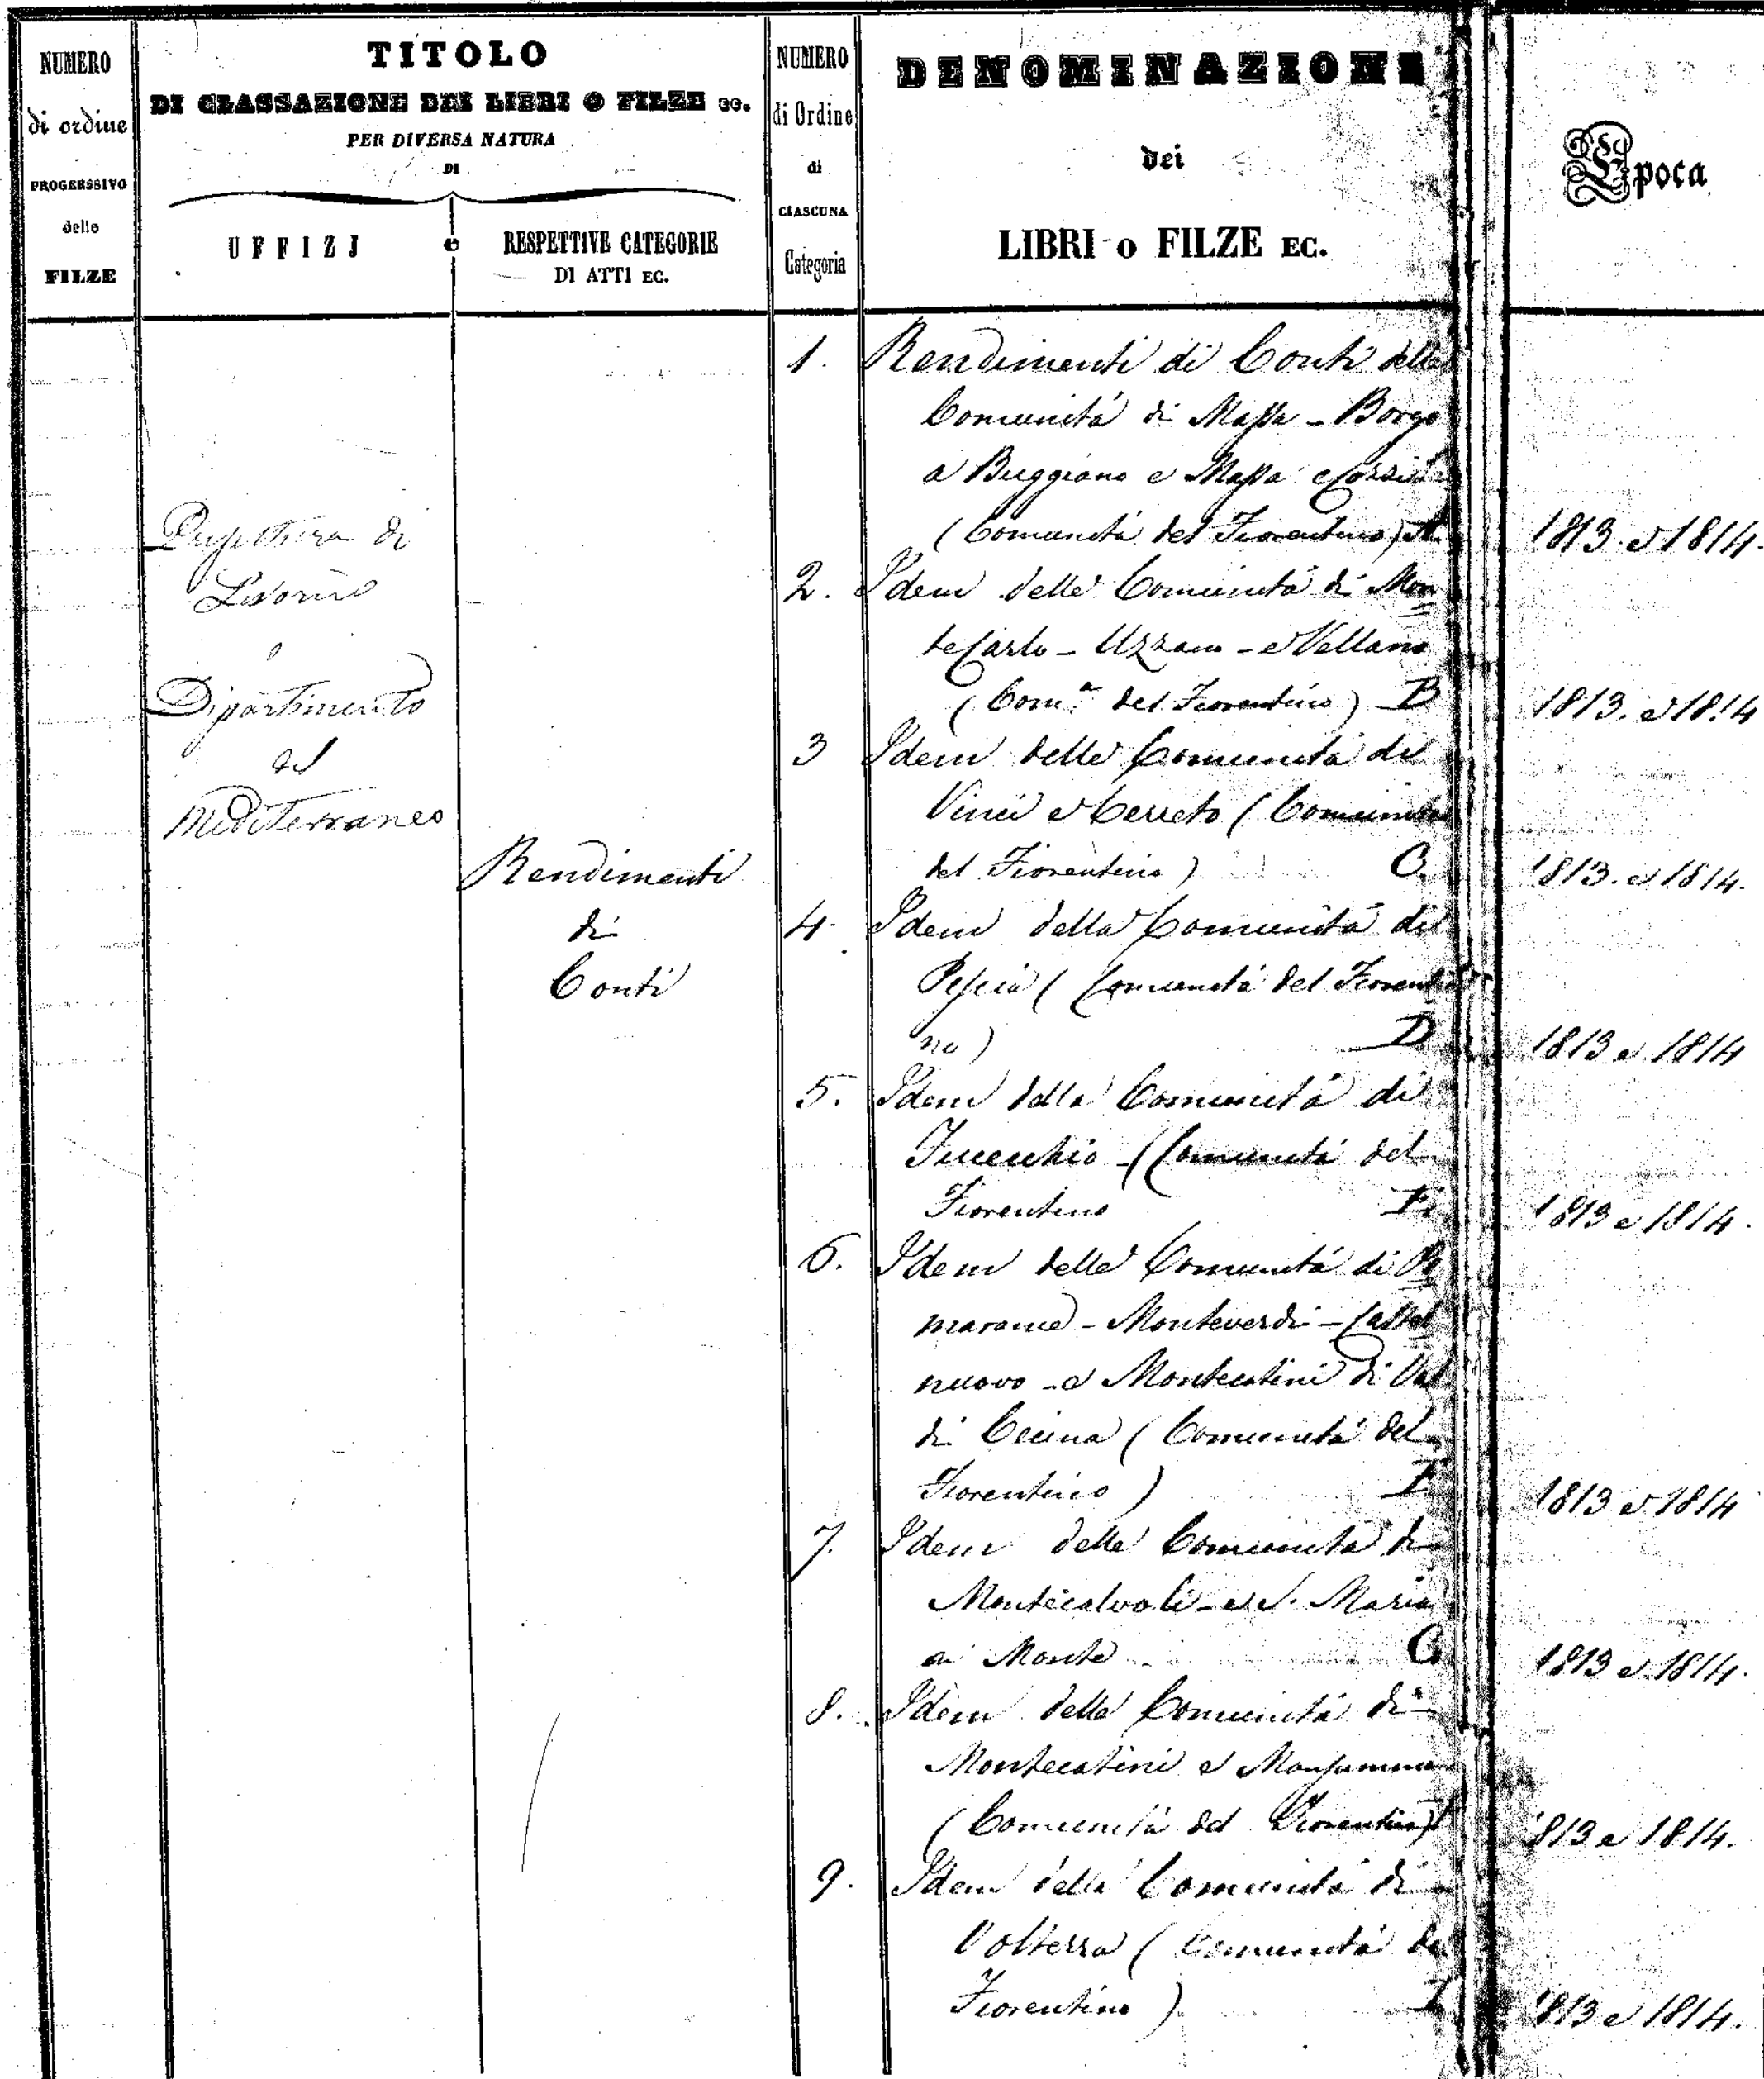 NUMERO
di ordine
PROGERSSIVO
delle
FILZE
TITOLO
DI CLASSAZIONE DEI LIBRI O FILZE ec.
PER DIVERSA NATURA
DI
UFFIZJ e RESPETTIVE CATEGORIE
DI ATTI EC.
NUMERO
di Ordine
di
CIASCUNA
Categoria
DENOMINAZIONE
dei
LIBRI o FILZE EC.
Epoca
Prefettura di
Livorno
o
Dipartimento
del
Mediterraneo
Rendimenti
di
Conti
1. Rendimenti di Conti delle
Comunità di Massa - Borgo
a Buggiano e Massa e Cozzile
(Comunità del Fiorentino) A. 1813. e 1814.
2. Idem delle Comunità di Mon
te Carlo - Uzzano - e Vellano
(Com.à del Fiorentino) B 1813. e 1814
3 Idem delle Comunità di
Vinci e Cerreto (Comunità
del Fiorentino) C. 1813. e 1814.
4. Idem della Comunità di
Pescia (Comunità del Fiorenti
no) D 1813 e 1814
5. Idem della Comunità di
Fucecchio - (Comunità del
Fiorentino E. 1813 e 1814.
6. Idem delle Comunità di Po
marance - Monteverdi - Castel
nuovo - e Montecatini di Val
di Cecina (Comunità del
Fiorentino) F 1813 e 1814
7. Idem delle Comunità di
Montecalvoli - e S. Maria
a Monte G 1813 e 1814.
8. Idem delle Comunità di
Montecatini e Monsummano
(Comunità del Fiorentino) 1813 e 1814.
9. Idem della Comunità di
Volterra (Comunità del
Fiorentino). I 1813 e 1814.